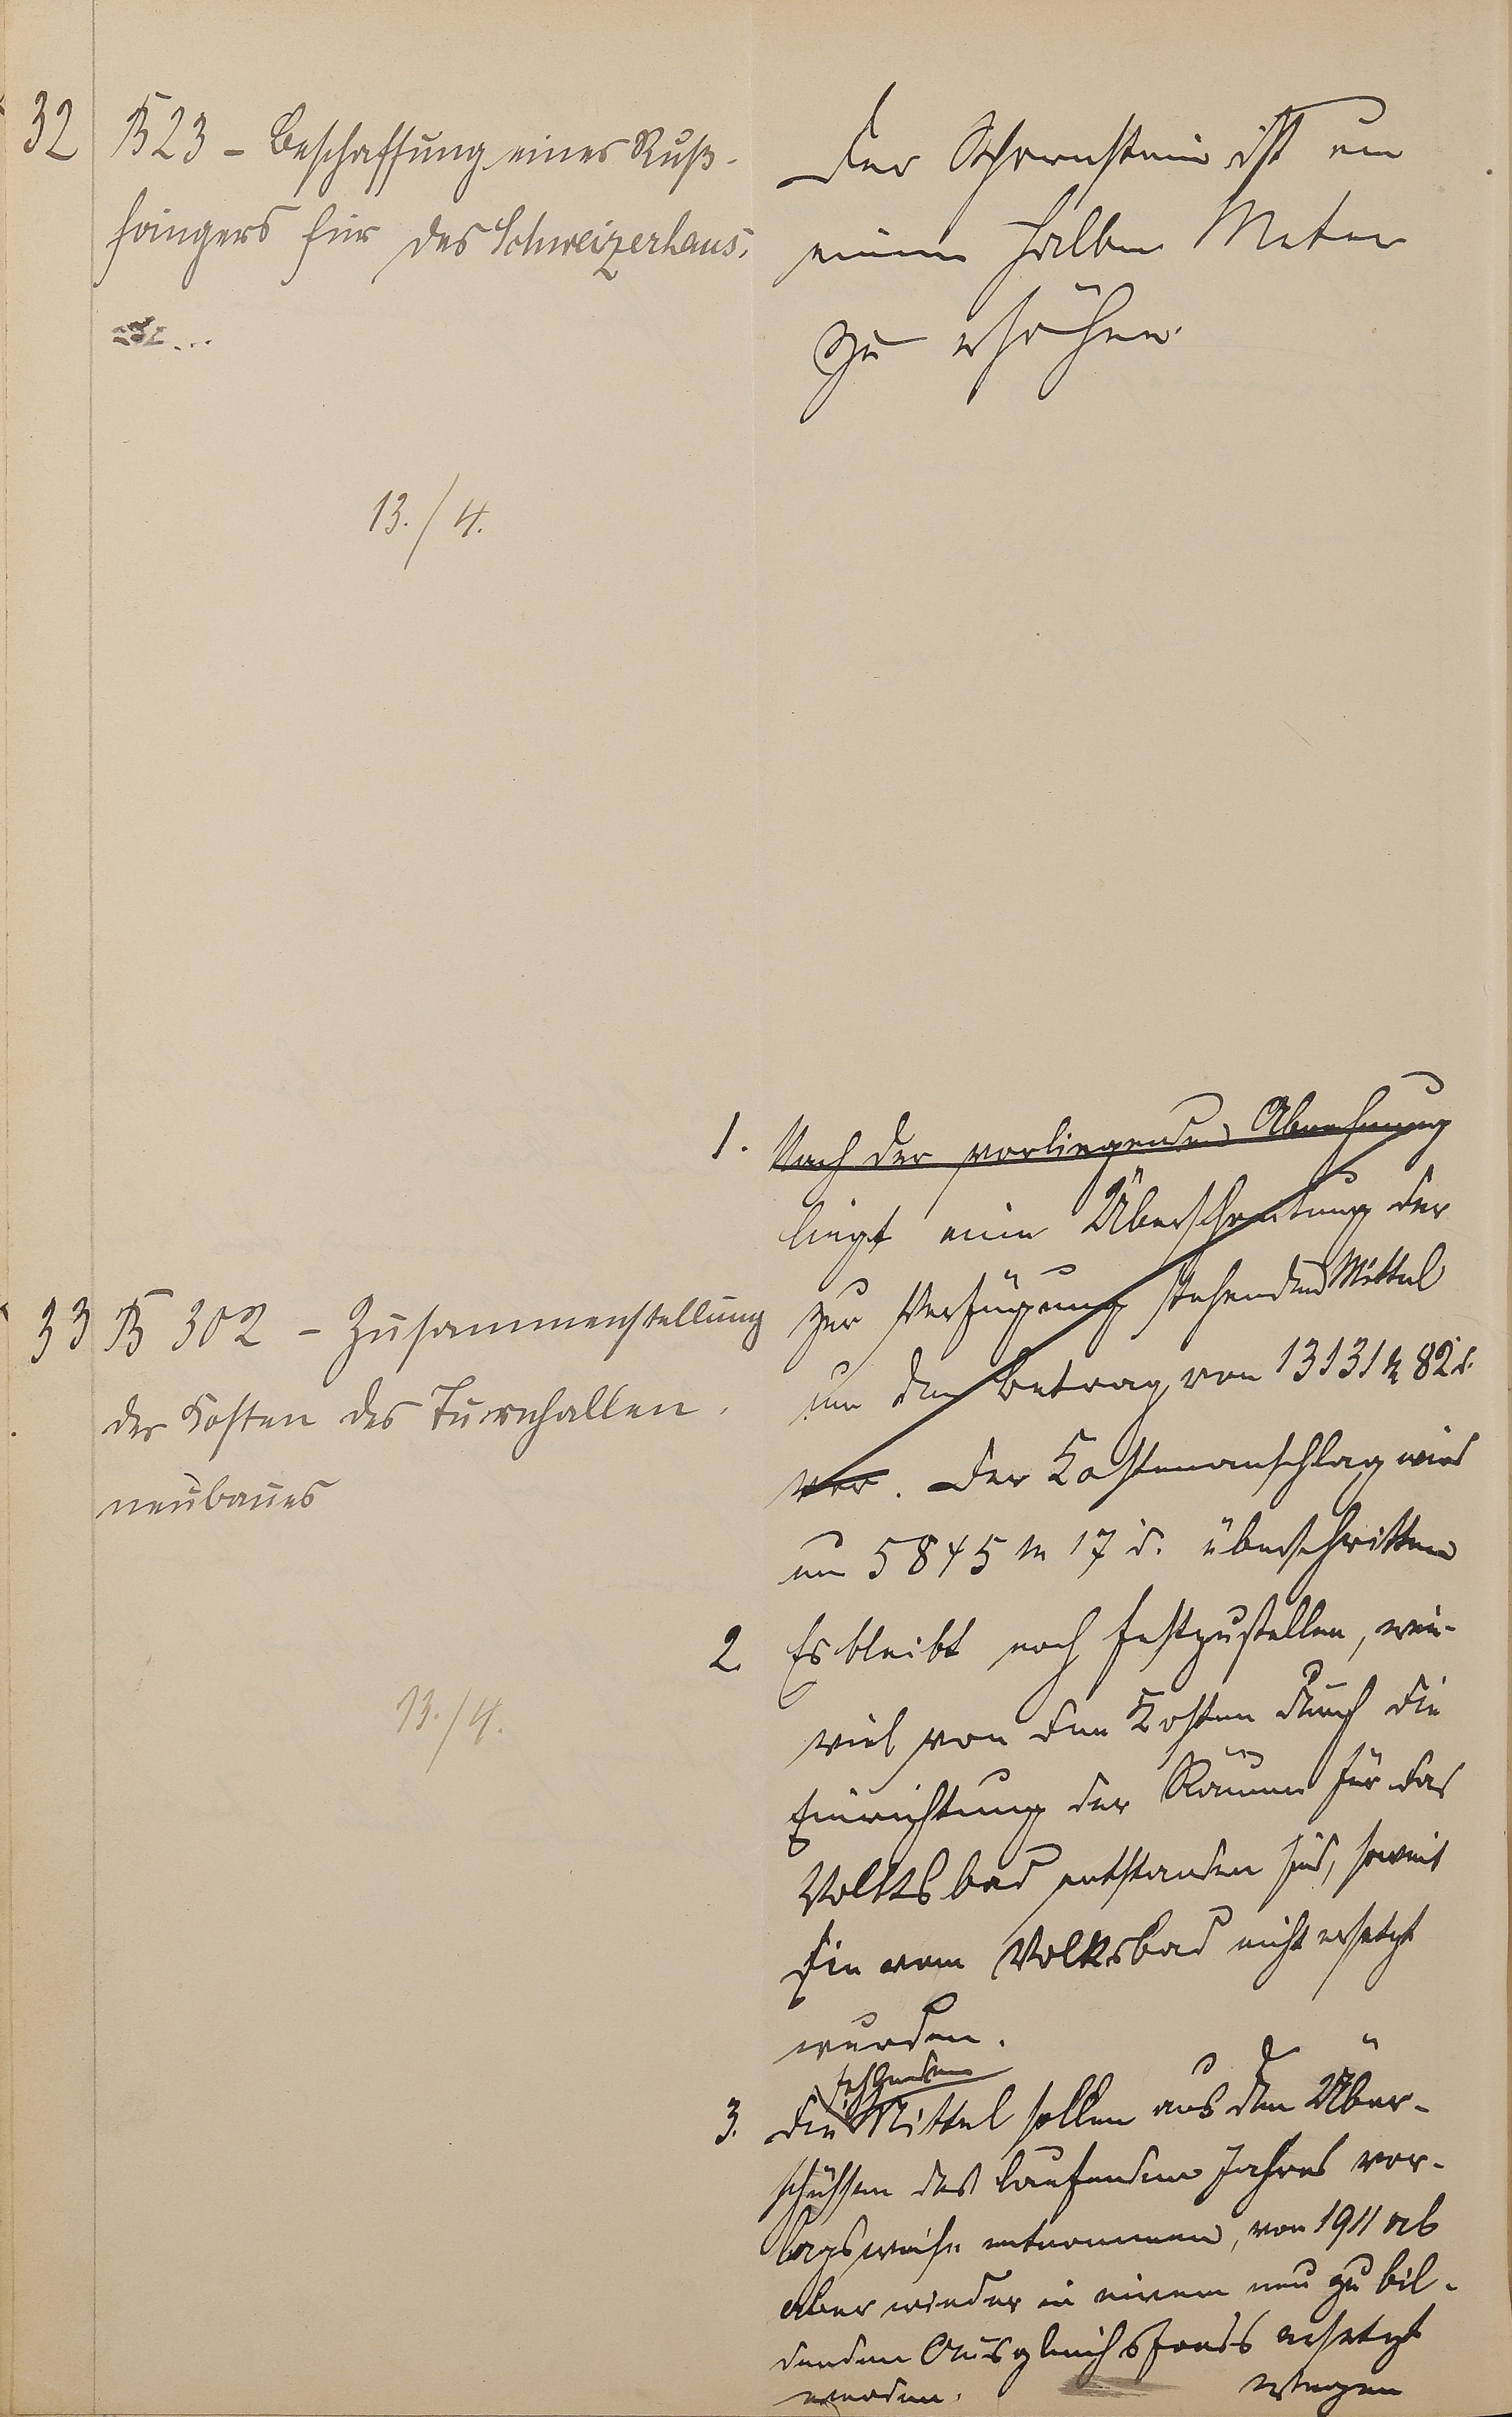 32 B 23 - Beschaffung eines Ruß-
fängers für das Schweizerhaus.
13./4.
Der Schornstein ist um
einen halben Meter
zu erhöhen.
33 B 302 - Zusammenstellung
der Kosten des Turnhallen-
neubaues
13./4.
1. Nach der vorliegenden Abrechnung
liegt eine Überschreitung der
zur Verfügung stehenden Mittel
um den Betrag von 13131 M 82 d.
vor. Der Kostenanschlag wird
um 5845 M 17 d. überschritten
2. Es bleibt noch festzustellen, wie-
viel von den Kosten durch die
Einrichtung der Räume für das
Volksbad entstanden sind, soweit
sie vom Volksbad nicht ersetzt
wurden.
3. Die fehlenden Mittel sollen aus den Über-
schüssen des laufenden Jahres vor-
lagsweise entnommen, von 1911 ab
aber wieder in einem neu zu bil-
denden Ausgleichsfonds ersetzt
werden.